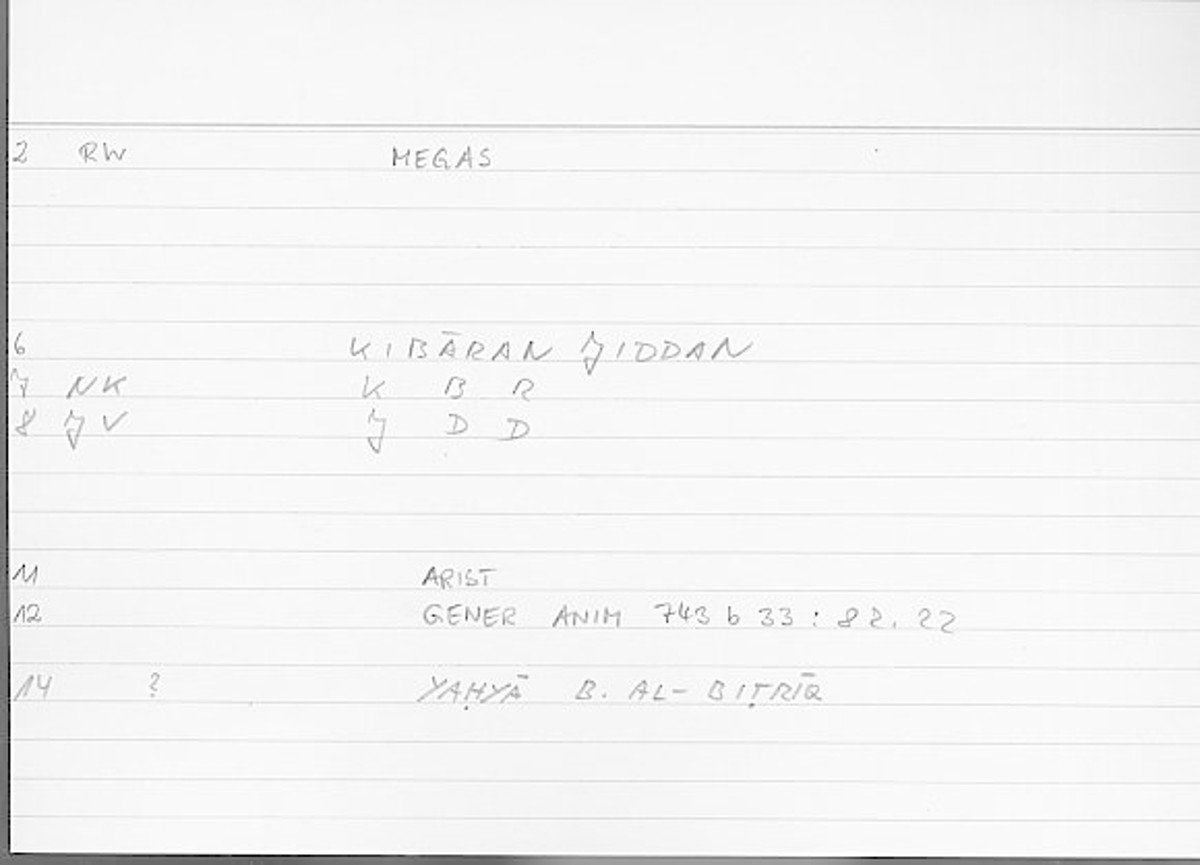 2 RW MEGAS
6 KIBĀRAN JIDDAN
7 NK K B R
8 JV J D D
11 ARIST
12 GENER ANIM 743 b 33 : 82.22
14 ? YAḤYĀ B. AL-BIṬRĪQ